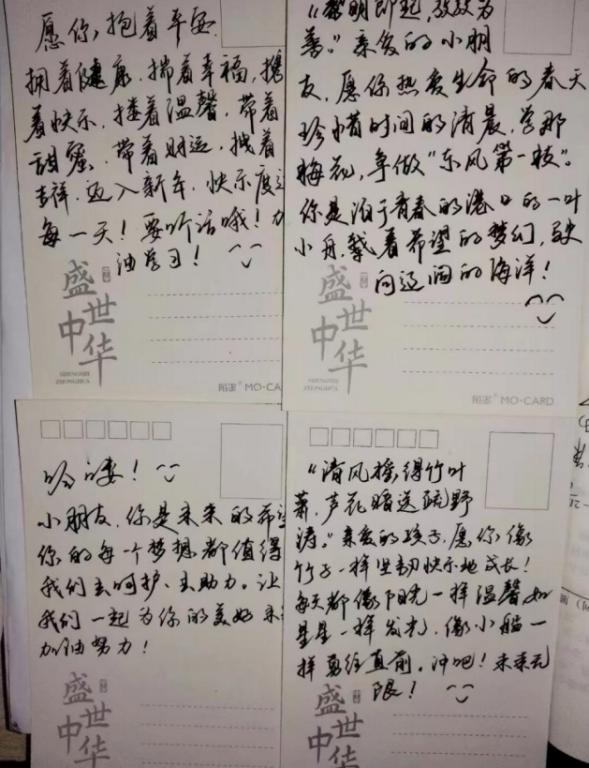 愿你，抱着平安
拥着健康，揣着幸福，携
着快乐，搂着温馨，带着
甜蜜，带着财运，拽着
吉祥，迈入新年，快乐度过
每一天！要听话哦！加
油学习！
盛世
中华
SHENGSHI
ZHONGHUA
陌墨 MO·CARD
“黎明即起，孜孜为
善。”亲爱的小朋
友，愿你热爱生命的春天
珍惜时间的清晨，学那
梅花，争做“东风第一枝”。
你是泊于青春的港口的一叶
小舟，载着希望的梦幻，驶
向辽阔的海洋！
盛世
中华
SHENGSHI
ZHONGHUA
陌墨 MO·CARD
哈喽！
小朋友，你是未来的希望
你的每一个梦想都值得
我们去呵护、去助力。让
我们一起为你的美好未
加油努力！
盛世
中
“清风摇得竹叶
萧，芦花暗送疏野
涛。”亲爱的孩子，愿你像
竹子一样坚韧快乐地成长！
每天都像阳光一样温馨如
星星一样发光，像小船一
样勇往直前。冲吧！未来无
限！
盛世
中